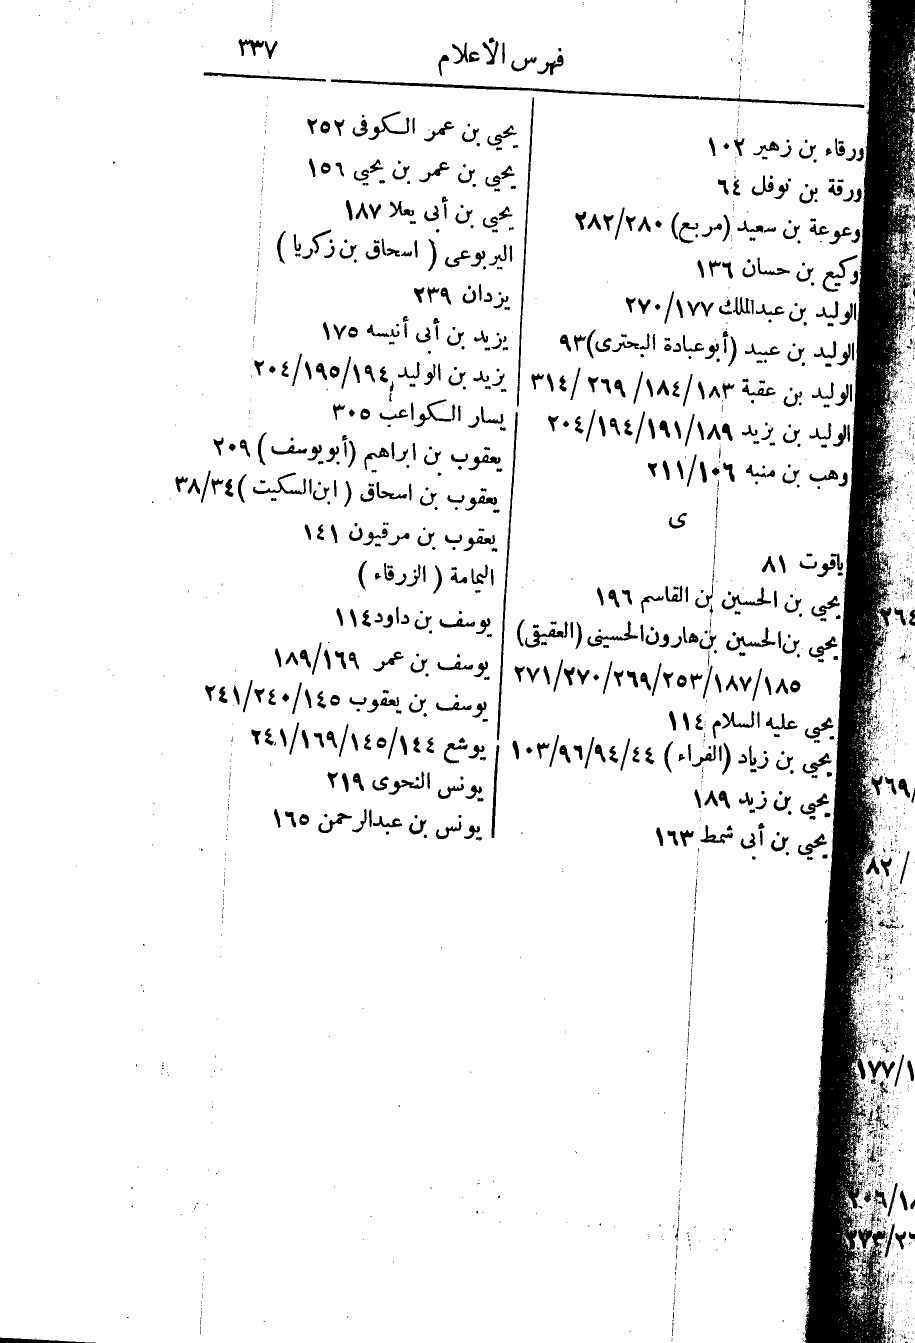 فهرس الأعلام
٣٣٧
ورقاء بن زهير ١٠٢
ورقة بن نوفل ٦٤
وعوعة بن سعيد (مربع) ٢٨٢/٢٨٠
وكيع بن حسان ١٣٦
الوليد بن عبدالملك ٢٧٠/١٧٧
الوليد بن عبيد (أبوعبادة البحترى)٩٣
الوليد بن عقبة ٣١٤/ ٢٦٩ /١٨٤/١٨٣
الوليد بن يزيد ٢٠٤/١٩٤/١٩١/١٨٩
وهب بن منبه ٢١١/١٠٦
ى
ياقوت ٨١
يحيي بن الحسين بن القاسم ١٩٦
يحيي بن الحسين بن هارون الحسينى (العقيقى)
٢٧١/٢٧٠/٢٦٩/٢٥٣/١٨٧/١٨٥
يحيي عليه السلام ١١٤
يحيي بن زياد (الفراء) ١٠٣/٩٦/٩٤/٤٤
يحيي بن زيد ١٨٩
يحيي بن أبى شمط ١٦٣
يحيي بن عمر الكوفى ٢٥٢
يحيي بن عمر بن يحيي ١٥٦
يحيي بن أبى يعلا ١٨٧
اليربوعى ( اسحاق بن زكريا )
يزدان ٢٣٩
يزيد بن أبى أنيسه ١٧٥
يزيد بن الوليد ٢٠٤/١٩٥/١٩٤
يسار الكواعب ٣٠٥
يعقوب بن ابراهيم (أبويوسف) ٢٠٩
يعقوب بن اسحاق ( ابن السكيت )٣٨/٣٤
يعقوب بن مرقيون ١٤١
اليمامة ( الزرقاء )
يوسف بن داود١١٤
يوسف بن عمر ١٨٩/١٦٩
يوسف بن يعقوب ٢٤١/٢٤٠/١٤٥
يوشع ٢٤١/١٦٩/١٤٥/١٤٤
يونس النحوى ٢١٩
يونس بن عبدالرحمن ١٦٥